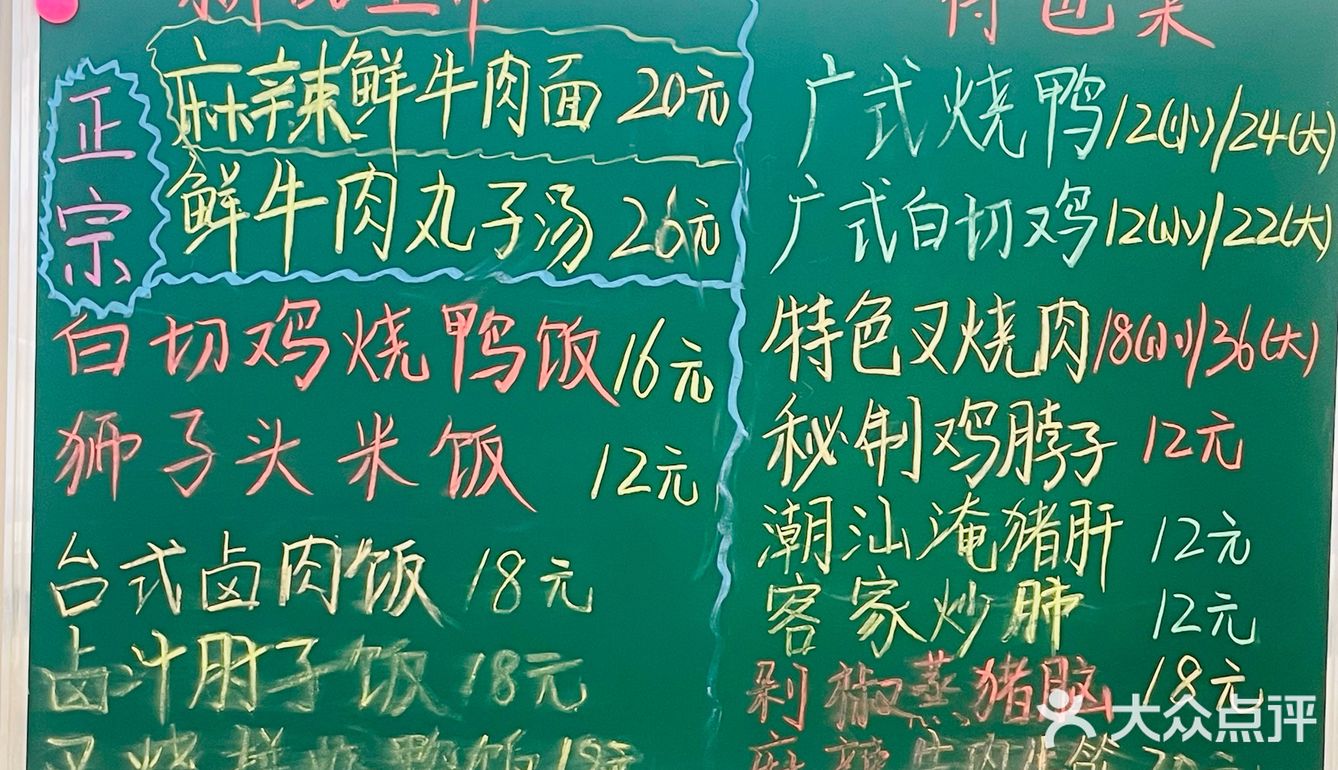 特色菜
正宗
麻辣鲜牛肉面 20元
鲜牛肉丸子汤 20元
白切鸡烧鸭饭 16元
狮子头米饭 12元
台式卤肉饭 18元
卤汁肘子饭 18元
广式烧鸭 12(小)/24(大)
广式白切鸡 12(小)/22(大)
特色叉烧肉 18(小)/36(大)
秘制鸡脖子 12元
潮汕淹猪肝 12元
客家炒肺 12元
剁椒蒸猪脑 18元
大众点评